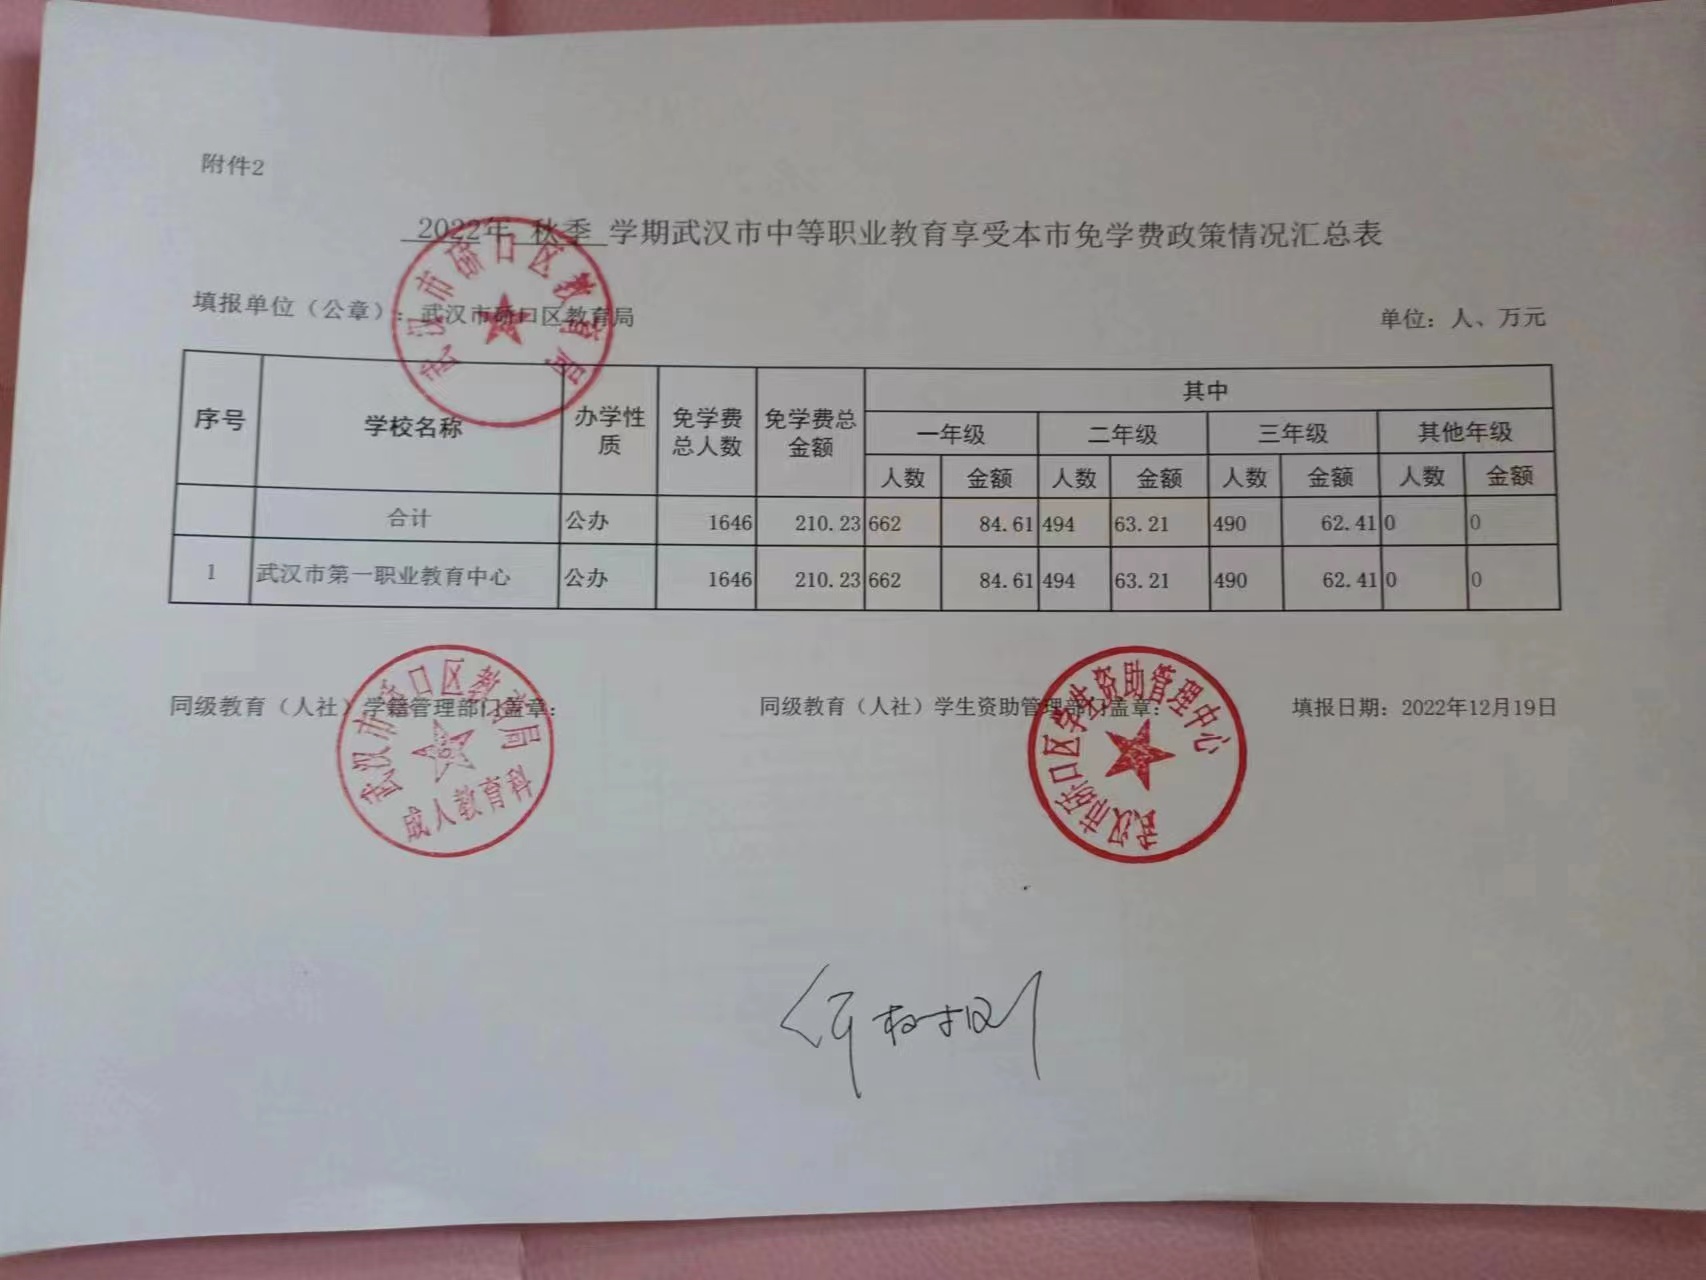 附件2
2022年 秋季 学期武汉市中等职业教育享受本市免学费政策情况汇总表
填报单位（公章）：武汉市硚口区教育局 单位：人、万元
武汉市硚口区教育局
序号 学校名称 办学性质 免学费总人数 免学费总金额 其中
一年级 二年级 三年级 其他年级
人数 金额 人数 金额 人数 金额 人数 金额
合计 公办 1646 210.23 662 84.61 494 63.21 490 62.41 0 0
1 武汉市第一职业教育中心 公办 1646 210.23 662 84.61 494 63.21 490 62.41 0 0
同级教育（人社）学籍管理部门盖章： 同级教育（人社）学生资助管理部门盖章： 填报日期：2022年12月19日
武汉市硚口区教育局
成人教育科
武汉市硚口区学生资助管理中心